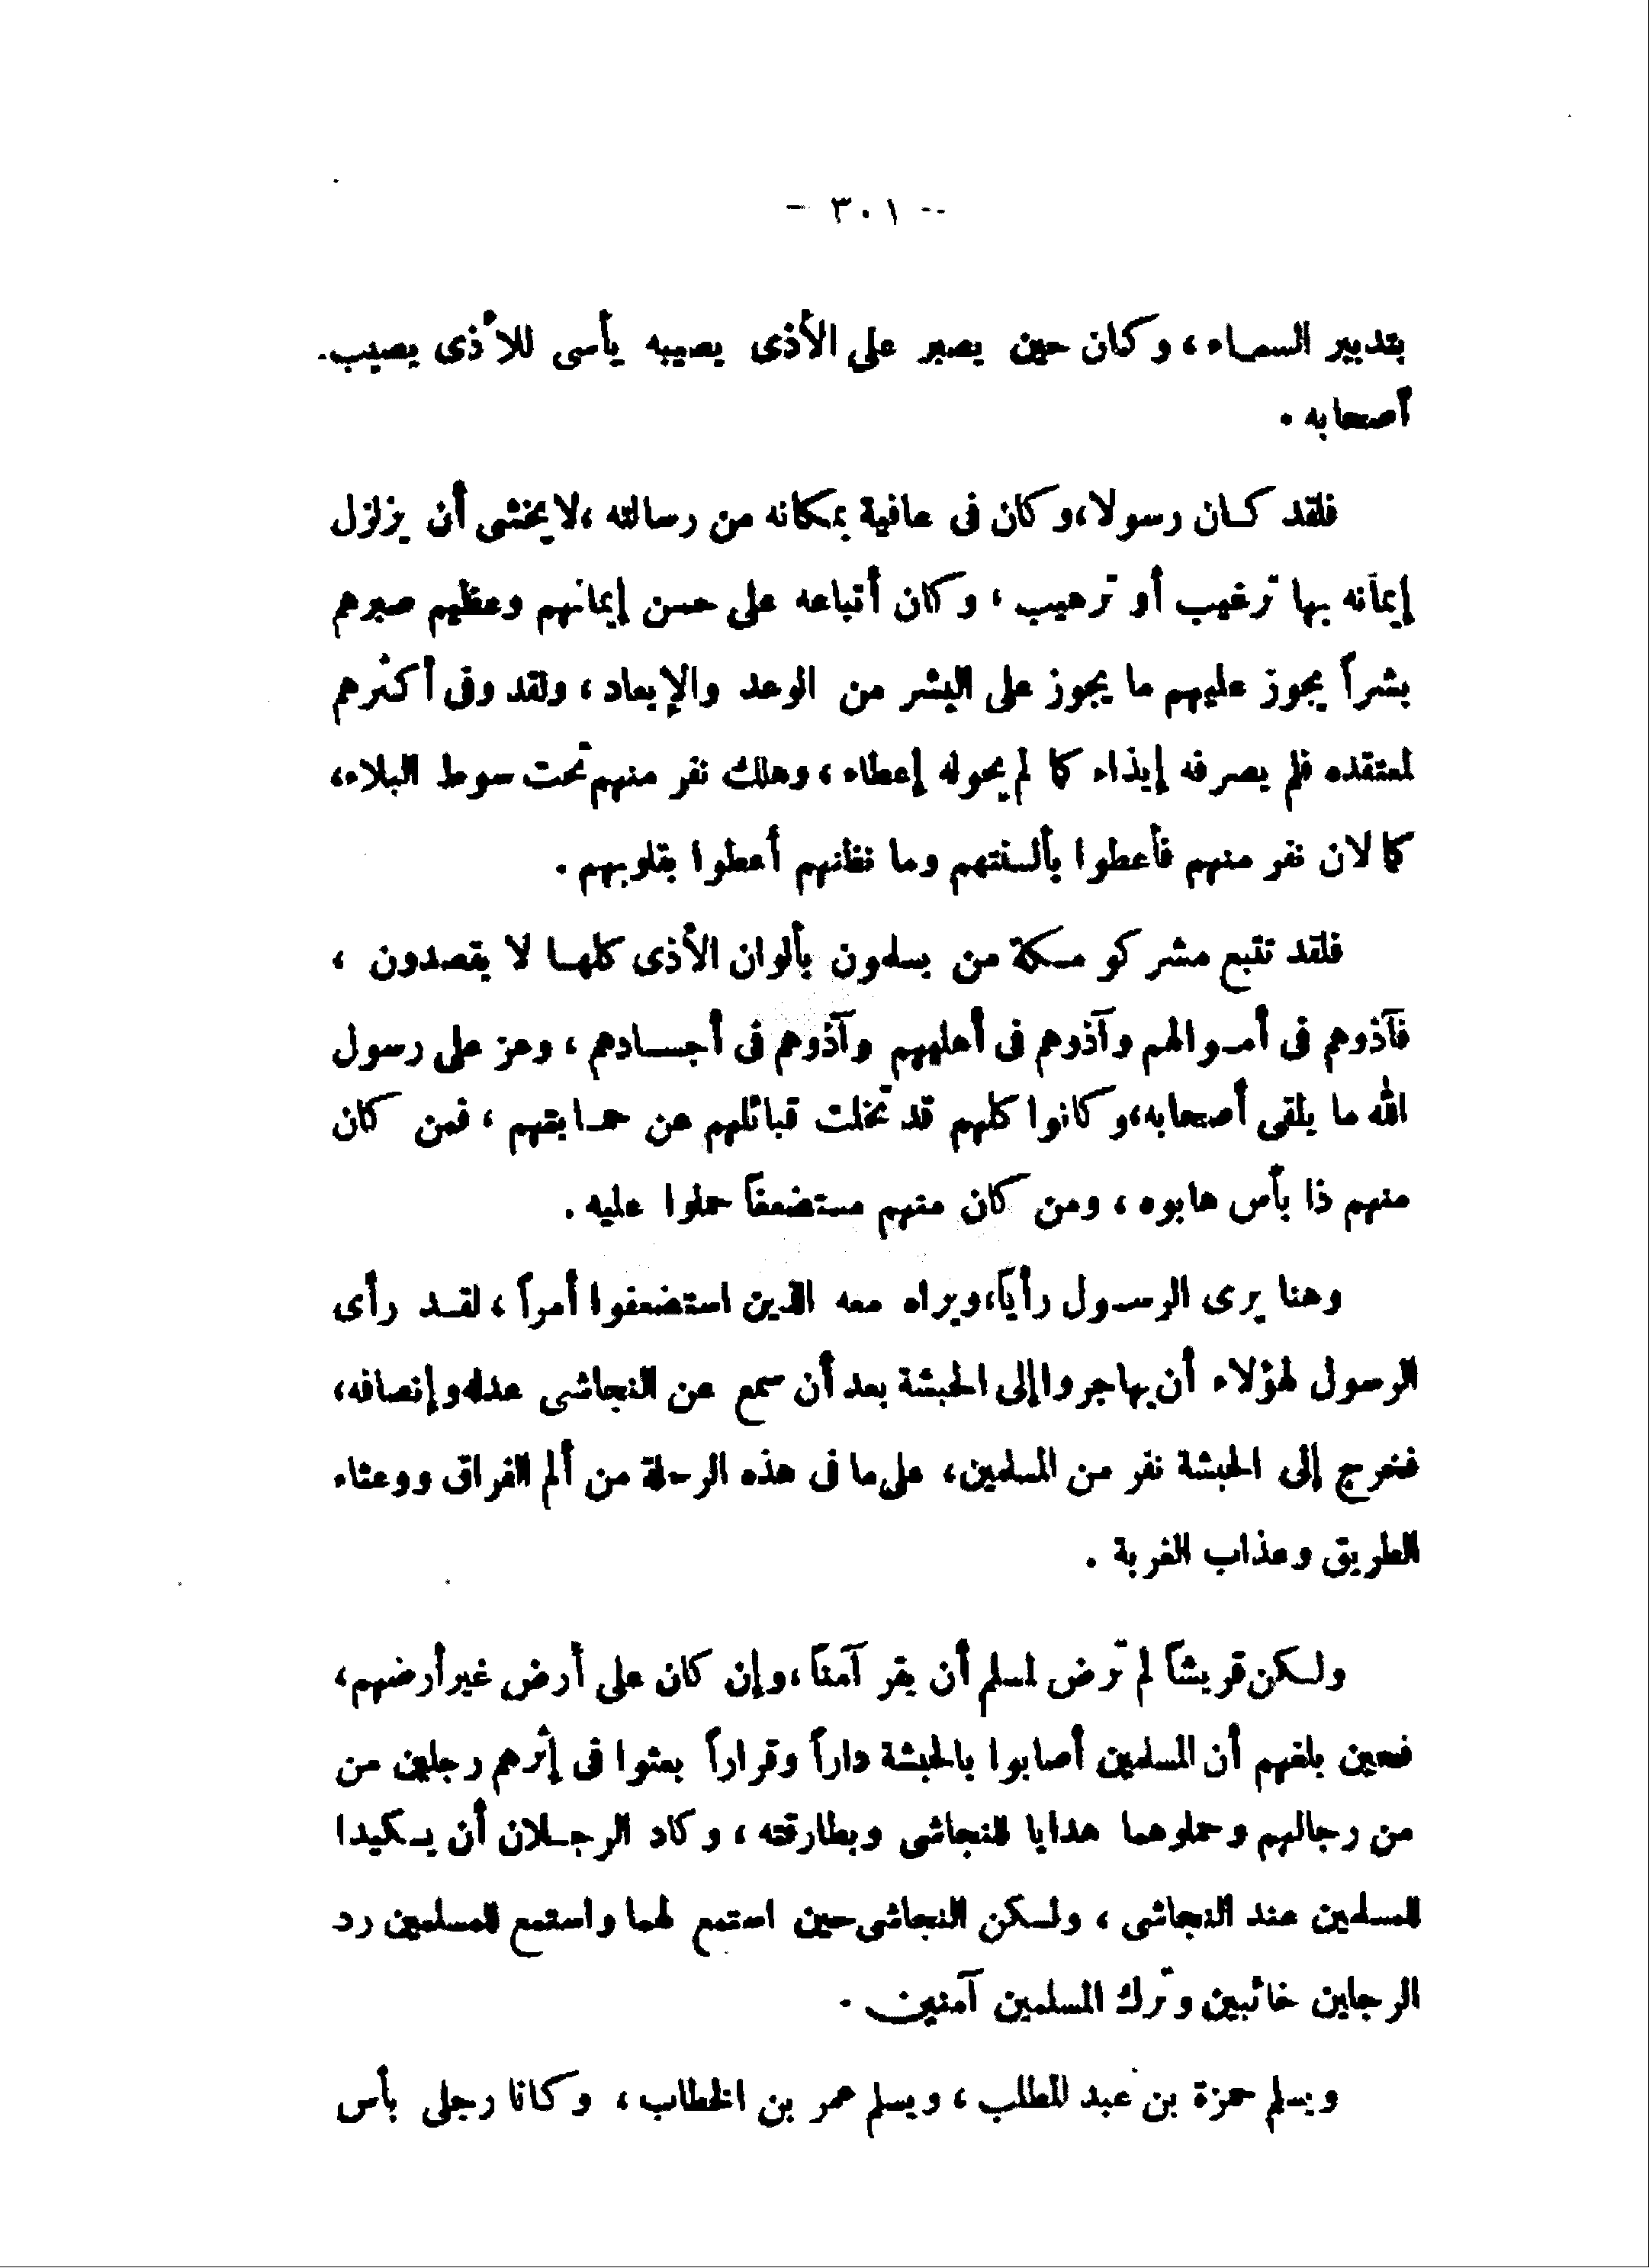 - ٣٠١ -
بتدبير السماء، وكان حين يصبر على الأذى يصيبه يأسى للأذى يصيب
أصحابه.
فلقد كان رسولا، وكان فى عافية بمكانه من رسالته، لا يخشى أن يزلزل
إيمانه بها ترغيب أو ترهيب، وكان أتباعه على حسن إيمانهم وعظيم صبرهم
بشراً يجوز عليهم ما يجوز على البشر من الوعد والإيعاد، ولقد وفى أكثرهم
لمعتقده فلم يصرفه إيذاء كما لم يحوله إعطاء، وهلك نفر منهم تحت سوط البلاء،
كما لان نفر منهم فأعطوا بألسنتهم وما نظنهم أعطوا بقلوبهم.
فلقد تتبع مشركو مكة من يسلمون بألوان الأذى كلها لا يقصدون،
فآذوهم فى أموالهم وآذوهم فى أهليهم وآذوهم فى أجسادهم، وعز على رسول
الله ما يلقى أصحابه، وكانوا كلهم قد تخلت قبائلهم عن حمايتهم، فمن كان
منهم ذا بأس هابوه، ومن كان منهم مستضعفاً حملوا عليه.
وهنا يرى الرسول رأياً، ويراه معه الذين استضعفوا أمراً، لقد رأى
الرسول لهؤلاء أن يهاجروا إلى الحبشة بعد أن سمع عن النجاشى عدله وإنصافه،
فخرج إلى الحبشة نفر من المسلمين، على ما فى هذه الرحلة من ألم الفراق ووعثاء
الطريق وعذاب الغربة.
ولكن قريشاً لم ترض لمسلم أن يقر آمناً، وإن كان على أرض غير أرضهم،
فحين بلغهم أن المسلمين أصابوا بالحبشة داراً وقراراً بعثوا فى إثرهم رجلين من
من رجالهم وحملوهما هدايا للنجاشى وبطارقته، وكاد الرجلان أن يكيدا
للمسلمين عند النجاشى، ولكن النجاشى حين استمع لهما واستمع للمسلمين رد
الرجلين خائبين وترك المسلمين آمنين.
ويسلم حمزة بن عبد المطلب، ويسلم عمر بن الخطاب، وكانا رجلى بأس